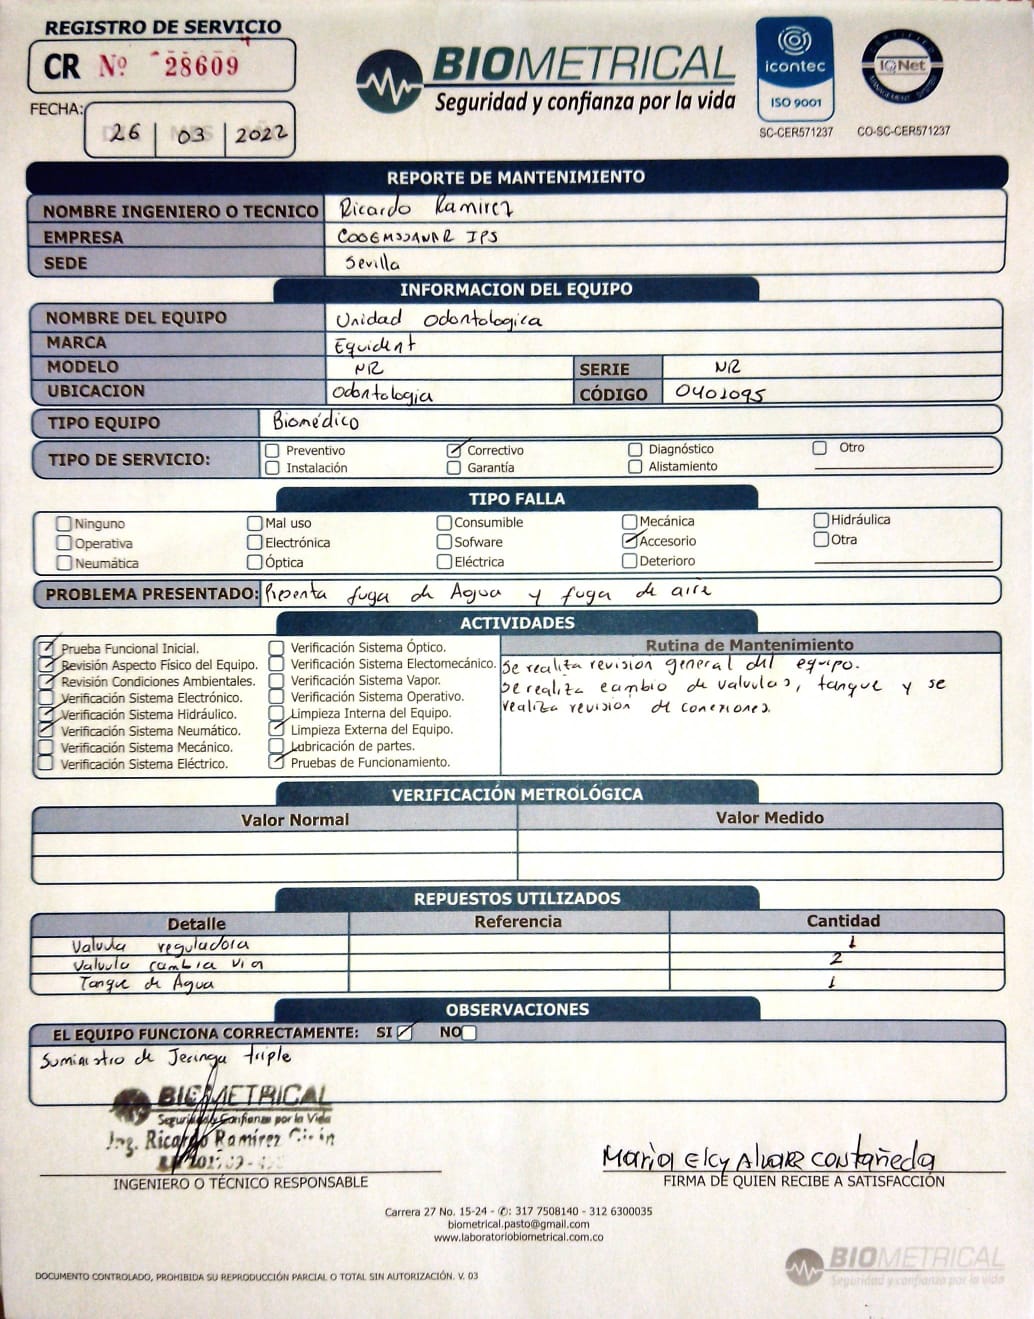 REGISTRO DE SERVICIO
CR Nº 28609
FECHA: 26 03 2022
BIOMETRICAL
Seguridad y confianza por la vida
icontec
ISO 9001
SC-CER571237
CERTIFIED
IQNet
MANAGEMENT SYSTEM
CO-SC-CER571237
REPORTE DE MANTENIMIENTO
NOMBRE INGENIERO O TECNICO Ricardo Ramirez
EMPRESA COOEMSSANAR IPS
SEDE Sevilla
INFORMACION DEL EQUIPO
NOMBRE DEL EQUIPO Unidad Odontologica
MARCA Equident
MODELO NR SERIE NR
UBICACION Odontologia CÓDIGO 0401095
TIPO EQUIPO Biomédico
TIPO DE SERVICIO: Preventivo Correctivo Diagnóstico Otro
Instalación Garantía Alistamiento
TIPO FALLA
Ninguno Mal uso Consumible Mecánica Hidráulica
Operativa Electrónica Sofware Accesorio Otra
Neumática Óptica Eléctrica Deterioro
PROBLEMA PRESENTADO: Presenta fuga de Agua y fuga de aire
ACTIVIDADES
Prueba Funcional Inicial.
Revisión Aspecto Físico del Equipo.
Revisión Condiciones Ambientales.
Verificación Sistema Electrónico.
Verificación Sistema Hidráulico.
Verificación Sistema Neumático.
Verificación Sistema Mecánico.
Verificación Sistema Eléctrico.
Verificación Sistema Óptico.
Verificación Sistema Electomecánico.
Verificación Sistema Vapor.
Verificación Sistema Operativo.
Limpieza Interna del Equipo.
Limpieza Externa del Equipo.
Lubricación de partes.
Pruebas de Funcionamiento.
Rutina de Mantenimiento
Se realiza revision general del equipo.
Se realiza cambio de valvulas, tanque y se
realiza revision de conexiones.
VERIFICACIÓN METROLÓGICA
Valor Normal Valor Medido
REPUESTOS UTILIZADOS
Detalle Referencia Cantidad
Valvula reguladora 1
Valvula cambia via 2
Tanque de Agua 1
OBSERVACIONES
EL EQUIPO FUNCIONA CORRECTAMENTE: SI NO
Suministro de Jeringa triple
BIOMETRICAL
Seguridad y Confianza por la Vida
Ing. Ricardo Ramírez
INGENIERO O TÉCNICO RESPONSABLE
Maria Elcy Alvarez Castañeda
FIRMA DE QUIEN RECIBE A SATISFACCIÓN
Carrera 27 No. 15-24 - ✆: 317 7508140 - 312 6300035
biometrical.pasto@gmail.com
www.laboratoriobiometrical.com.co
BIOMETRICAL
Seguridad y confianza por la vida
DOCUMENTO CONTROLADO, PROHIBIDA SU REPRODUCCIÓN PARCIAL O TOTAL SIN AUTORIZACIÓN. V. 03